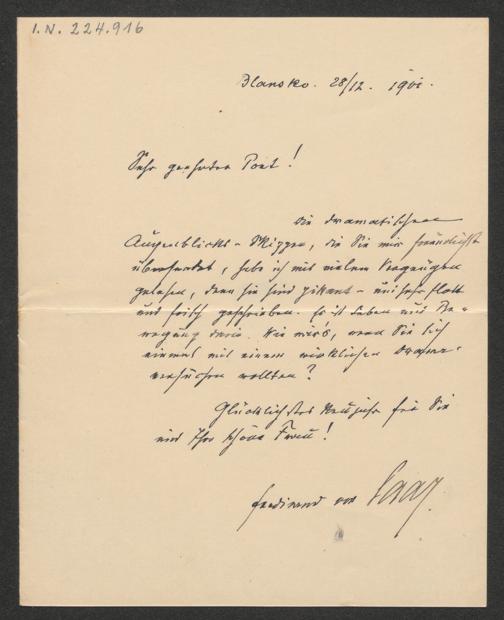 I.N. 224.916
Blansko. 28/12. 1901.
Sehr geehrter Poet!
Die dramatischen
Augenblicks-Skizzen, die Sie mir freundlichst
übersendet, habe ich mit vielem Vergnügen
gelesen, denn sie sind pikant – und sehr flott
und frisch geschrieben. Es ist Leben und Be-
wegung darin. Wie wär's, wenn Sie sich
einmal mit einem wirklichen Drama
versuchen wollten?
Glückliches Neujahr für Sie
und Ihre schöne Frau!
Ferdinand von Saar.